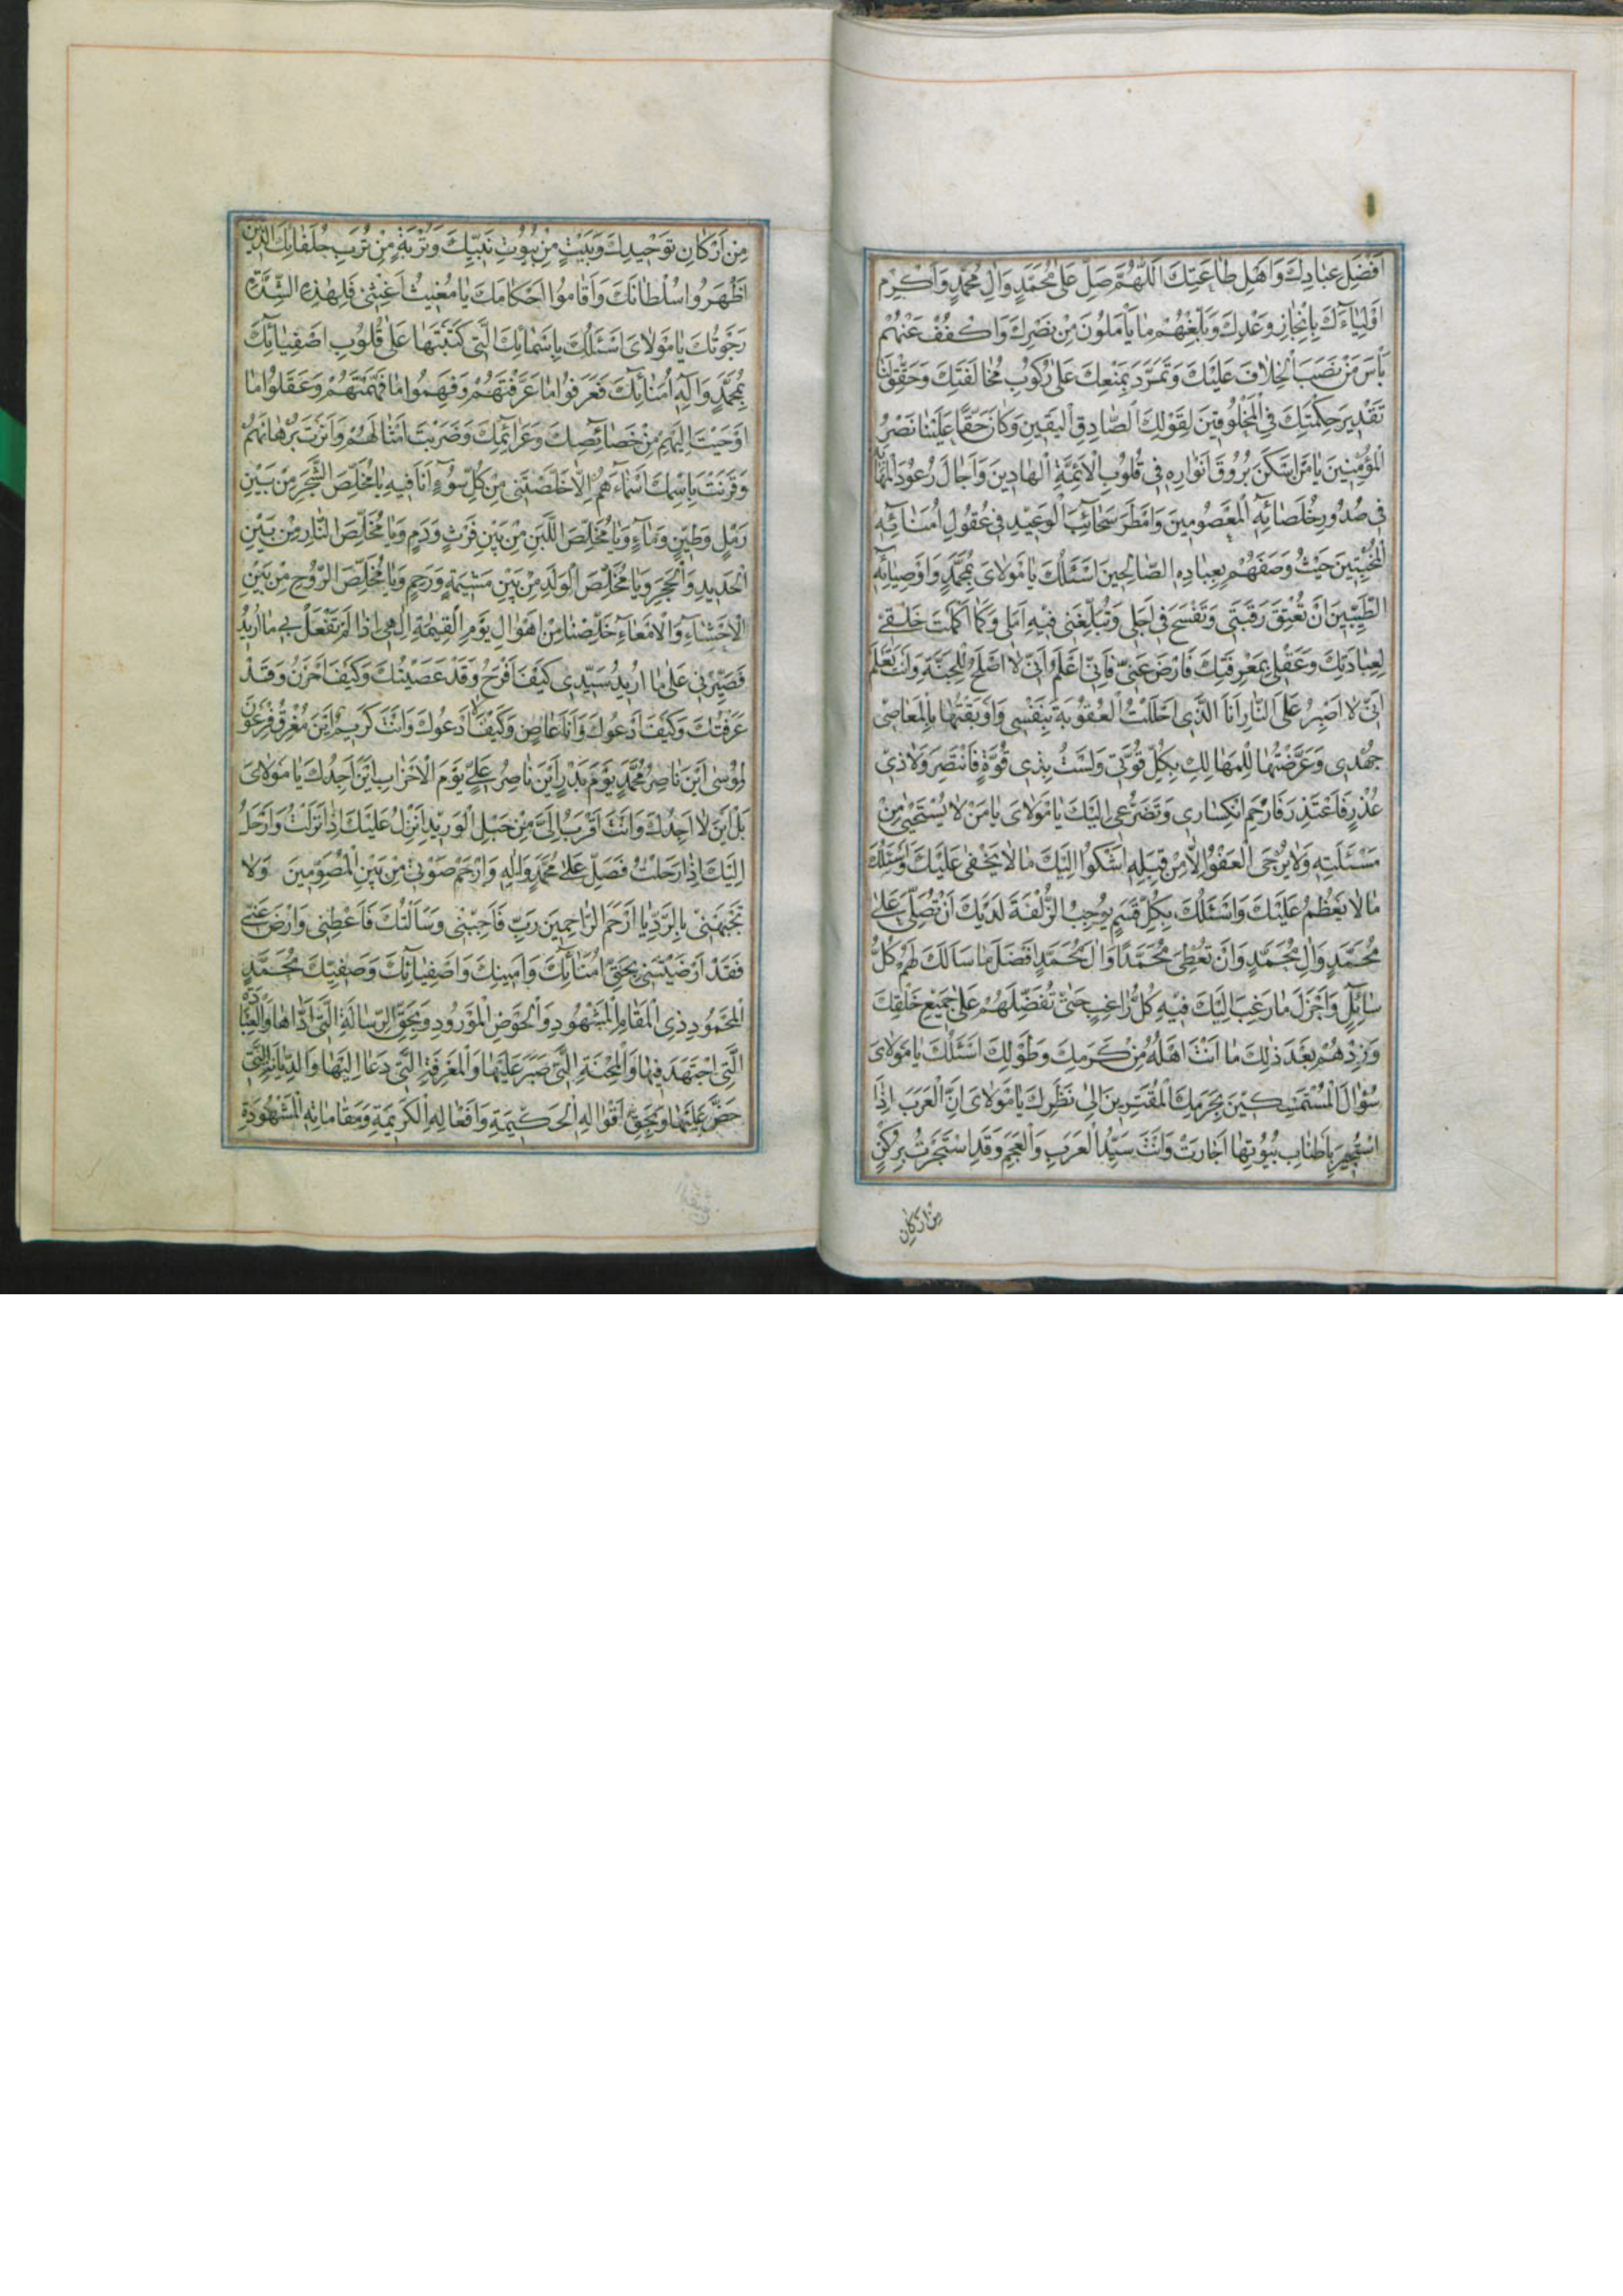 اَفْضَلِ عِبَادِكَ وَاَهْلِ طَاعَتِكَ اَللّٰهُمَّ صَلِّ عَلىٰ مُحَمَّدٍ وَاٰلِ مُحَمَّدٍ وَاَكْرِمْ
اَوْلِيَاۤءَكَ بِاِنْجَازِ وَعْدِكَ وَبَلِّغْهُمْ مَا يَاْمَلُونَ مِنْ نَصْرِكَ وَاكْفُفْ عَنْهُمْ
بَاْسَ مَنْ نَصَبَ الْخِلَافَ عَلَيْكَ وَتَمَرَّدَ بِمَنْعِكَ عَلىٰ رُكُوبِ مُخَالَفَتِكَ وَحَقِّقْ لَنَا
تَقْدِيرَ حِكْمَتِكَ فِي الْمَخْلُوقِينَ لِقَوْلِكَ الصَّادِقِ الْيَقِينِ وَكَانَ حَقًّا عَلَيْنَا نَصْرُ
الْمُؤْمِنِينَ يَا مَنْ اَسْكَنَ بُرُوقَ اَنْوَارِهِ فِي قُلُوبِ الْاَئِمَّةِ الْهَادِينَ وَاَجَالَ رُعُودَ
فِي صُدُورِ خُلَصَائِهِ الْمَعْصُومِينَ وَاَمْطَرَ سَحَائِبَ الْوَعِيدِ فِي عُقُولِ اُمَنَائِهِ
الْمُخْبِتِينَ حَيْثُ وَصَفَهُمْ بِعِبَادِهِ الصَّالِحِينَ اَسْئَلُكَ يَا مَوْلَايَ بِمُحَمَّدٍ وَاَوْصِيَائِهِ
الطَّيِّبِينَ اَنْ تُعْتِقَ رَقَبَتِي وَتَفْسَحَ فِي اَجَلِي وَتُبَلِّغَنِي فِيهِ اَمَلِي وَكَمَا اَكْمَلْتَ خَلْقِي
لِعِبَادَتِكَ وَعَقْلِي بِمَعْرِفَتِكَ فَارْضَ عَنِّي فَاِنِّي اَعْلَمُ اَنِّي لَا اَصْلَحُ لِلْجَنَّةِ وَاَنْتَ تَعْلَمُ
اَنِّي لَا اَصْبِرُ عَلَى النَّارِ اَنَا الَّذِي اَحْلَلْتُ الْعُقُوبَةَ بِنَفْسِي وَاَوْبَقْتُهَا بِالْمَعَاصِي
جُهْدِي وَعَرَّضْتُهَا لِلْمَهَالِكِ بِكُلِّ قُوَّتِي وَلَسْتُ بِذِي قُوَّةٍ فَاَنْتَصِرَ وَلَا ذِي
عُذْرٍ فَاَعْتَذِرَ فَارْحَمِ انْكِسَارِي وَتَضَرُّعِي اِلَيْكَ يَا مَوْلَايَ يَا مَنْ لَا يُسْتَحْيىٰ مِنْ
مَسْئَلَتِهِ وَلَا يُرْجَى الْعَفْوُ اِلَّا مِنْ قِبَلِهِ اَشْكُوا اِلَيْكَ مَا لَا يَخْفىٰ عَلَيْكَ وَاَسْئَلُكَ
مَا لَا يَعْظُمُ عَلَيْكَ وَاَسْئَلُكَ بِكُلِّ قَسَمٍ يُوجِبُ الزُّلْفَةَ لَدَيْكَ اَنْ تُصَلِّيَ عَلىٰ
مُحَمَّدٍ وَاٰلِ مُحَمَّدٍ وَاَنْ تُعْطِيَ مُحَمَّدًا وَاٰلَ مُحَمَّدٍ اَفْضَلَ مَا سَاَلَكَ لَهُمْ كُلُّ
سَائِلٍ وَاَجْزَلَ مَا رَغِبَ اِلَيْكَ فِيهِ كُلُّ رَاغِبٍ حَتّٰى تُفَضِّلَهُمْ عَلىٰ جَمِيعِ خَلْقِكَ
وَزِدْهُمْ بَعْدَ ذٰلِكَ مَا اَنْتَ اَهْلُهُ مِنْ كَرَمِكَ وَطَوْلِكَ اَسْئَلُكَ يَا مَوْلَايَ
سُؤَالَ الْمُسْتَمْسِكِينَ بِحَرَمِكَ الْمُفْتَقِرِينَ اِلىٰ نَظَرِكَ يَا مَوْلَايَ اِنَّ الْعَرَبَ اِذَا
اسْتُجِيرَ بِاَطْنَابِ بُيُوتِهَا اَجَارَتْ وَاَنْتَ سَيِّدُ الْعَرَبِ وَالْعَجَمِ وَقَدِ اسْتَجَرْتُ بِرُكْنٍ
مِنْ اَرْكَانِ
مِنْ اَرْكَانِ تَوْحِيدِكَ وَبَيْتٍ مِنْ بُيُوتِ نَبِيِّكَ وَتُرْبَةٍ مِنْ تُرَبِ خُلَفَائِكَ الَّذِينَ
اَظْهَرُوا سُلْطَانَكَ وَاَقَامُوا اَحْكَامَكَ يَا مُغِيثُ اَغِثْنِي فَلِهٰذِهِ الشِّدَّةِ
رَجَوْتُكَ يَا مَوْلَايَ اَسْئَلُكَ بِاَسْمَائِكَ الَّتِي كَتَبْتَهَا عَلىٰ قُلُوبِ اَصْفِيَائِكَ
بِمُحَمَّدٍ وَاٰلِهِ اُمَنَائِكَ فَعَرَفُوا مَا عَرَّفْتَهُمْ وَفَهِمُوا مَا فَهَّمْتَهُمْ وَعَقَلُوا مَا
اَوْحَيْتَ اِلَيْهِمْ مِنْ خَصَائِصِكَ وَعَزَائِمِكَ وَضَرَبْتَ اَمْثَالَهُمْ وَاَنَرْتَ بُرْهَانَهُمْ
وَقَرَنْتَ بِاسْمِكَ اَسْمَاءَهُمْ اِلَّا خَلَّصْتَنِي مِنْ كُلِّ سُوۤءٍ اَنَا فِيهِ يَا مُخَلِّصَ الشَّجَرِ مِنْ بَيْنِ
رَمْلٍ وَطِينٍ وَمَاۤءٍ وَيَا مُخَلِّصَ اللَّبَنِ مِنْ بَيْنِ فَرْثٍ وَدَمٍ وَيَا مُخَلِّصَ النَّارِ مِنْ بَيْنِ
الْحَدِيدِ وَالْحَجَرِ وَيَا مُخَلِّصَ الْوَلَدِ مِنْ بَيْنِ مَشِيمَةٍ وَرَحِمٍ وَيَا مُخَلِّصَ الرُّوحِ مِنْ بَيْنِ
الْاَحْشَاءِ وَالْاَمْعَاءِ خَلِّصْنَا مِنْ اَهْوَالِ يَوْمِ الْقِيٰمَةِ اِلٰهِي اِذَا لَمْ تَفْعَلْ بِي مَا اُرِيدُ
فَصَبِّرْنِي عَلىٰ مَا تُرِيدُ سَيِّدِي كَيْفَ اَفْرَحُ وَقَدْ عَصَيْتُكَ وَكَيْفَ اَحْزَنُ وَقَدْ
عَرَفْتُكَ وَكَيْفَ اَدْعُوكَ وَاَنَا عَاصٍ وَكَيْفَ لَا اَدْعُوكَ وَاَنْتَ كَرِيمٌ اَيْنَ مُغْرِقُ فِرْعَوْنَ
لِمُوسىٰ اَيْنَ نَاصِرُ مُحَمَّدٍ يَوْمَ بَدْرٍ اَيْنَ نَاصِرُ عَلِيٍّ يَوْمَ الْاَحْزَابِ اَيْنَ اَجِدُكَ يَا مَوْلَايَ
بَلْ اَيْنَ لَا اَجِدُكَ وَاَنْتَ اَقْرَبُ اِلَيَّ مِنْ حَبْلِ الْوَرِيدِ اَنْزِلُ عَلَيْكَ اِذَا نَزَلْتُ وَاَرْحَلُ
اِلَيْكَ اِذَا رَحَلْتُ فَصَلِّ عَلىٰ مُحَمَّدٍ وَاٰلِهِ وَارْحَمْ صَوْتِي مِنْ بَيْنِ الْمُصَوِّتِينَ وَلَا
تَجْبَهْنِي بِالرَّدِّ يَا اَرْحَمَ الرَّاحِمِينَ رَبِّ فَاَجِبْنِي وَسَاَلْتُكَ فَاَعْطِنِي وَارْضَ عَنِّي
فَقَدْ اَرْضَيْتَنِي بِحَقِّ اُمَنَائِكَ وَاَمِينِكَ وَاَصْفِيَائِكَ وَصَفِيِّكَ مُحَمَّدٍ
الْمَحْمُودِ ذِي الْمَقَامِ الْمَشْهُودِ وَالْحَوْضِ الْمَوْرُودِ وَبِحَقِّ الرِّسَالَةِ الَّتِي اَدَّاهَا وَالْعِبَادَةِ
الَّتِي اجْتَهَدَ فِيهَا وَالْمِحْنَةِ الَّتِي صَبَرَ عَلَيْهَا وَالْمَعْرِفَةِ الَّتِي دَعَا اِلَيْهَا وَالدِّيَانَةِ الَّتِي
حَضَّ عَلَيْهَا وَبِحَقِّ اَقْوَالِهِ الْحَكِيمَةِ وَاَفْعَالِهِ الْكَرِيمَةِ وَمَقَامَاتِهِ الْمَشْهُودَةِ